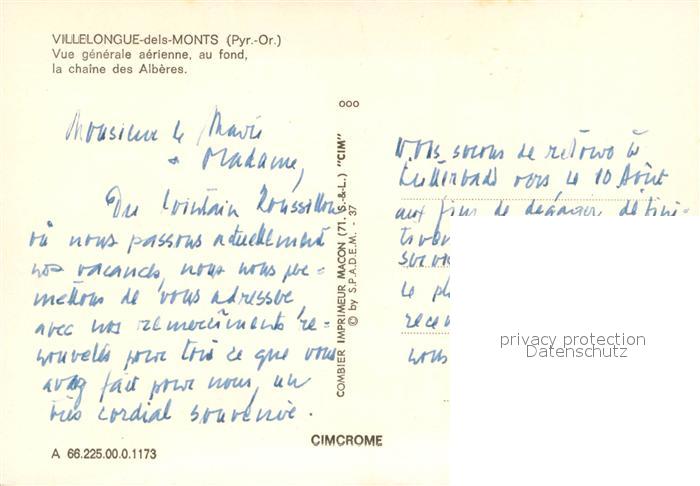 VILLELONGUE-dels-MONTS (Pyr.-Or.)
Vue générale aérienne, au fond,
la chaîne des Albères.
Monsieur le Maire
& Madame,
Du lointain Roussillon
où nous passons actuellement
nos vacances, nous nous per-
mettons de vous adresser,
avec nos remerciments re-
nouvelés pour tout ce que vous
avez fait pour nous, un
très cordial souvenir.
A 66.225.00.0.1173
COMBIER IMPRIMEUR MACON (71. S.-&-L.) "CIM"
© by S.P.A.D.E.M. - 37
CIMCROME
Nous serons de retour à
vers le 10 Août
aux fins de dégager défini-
le
nous
privacy protection
Datenschutz